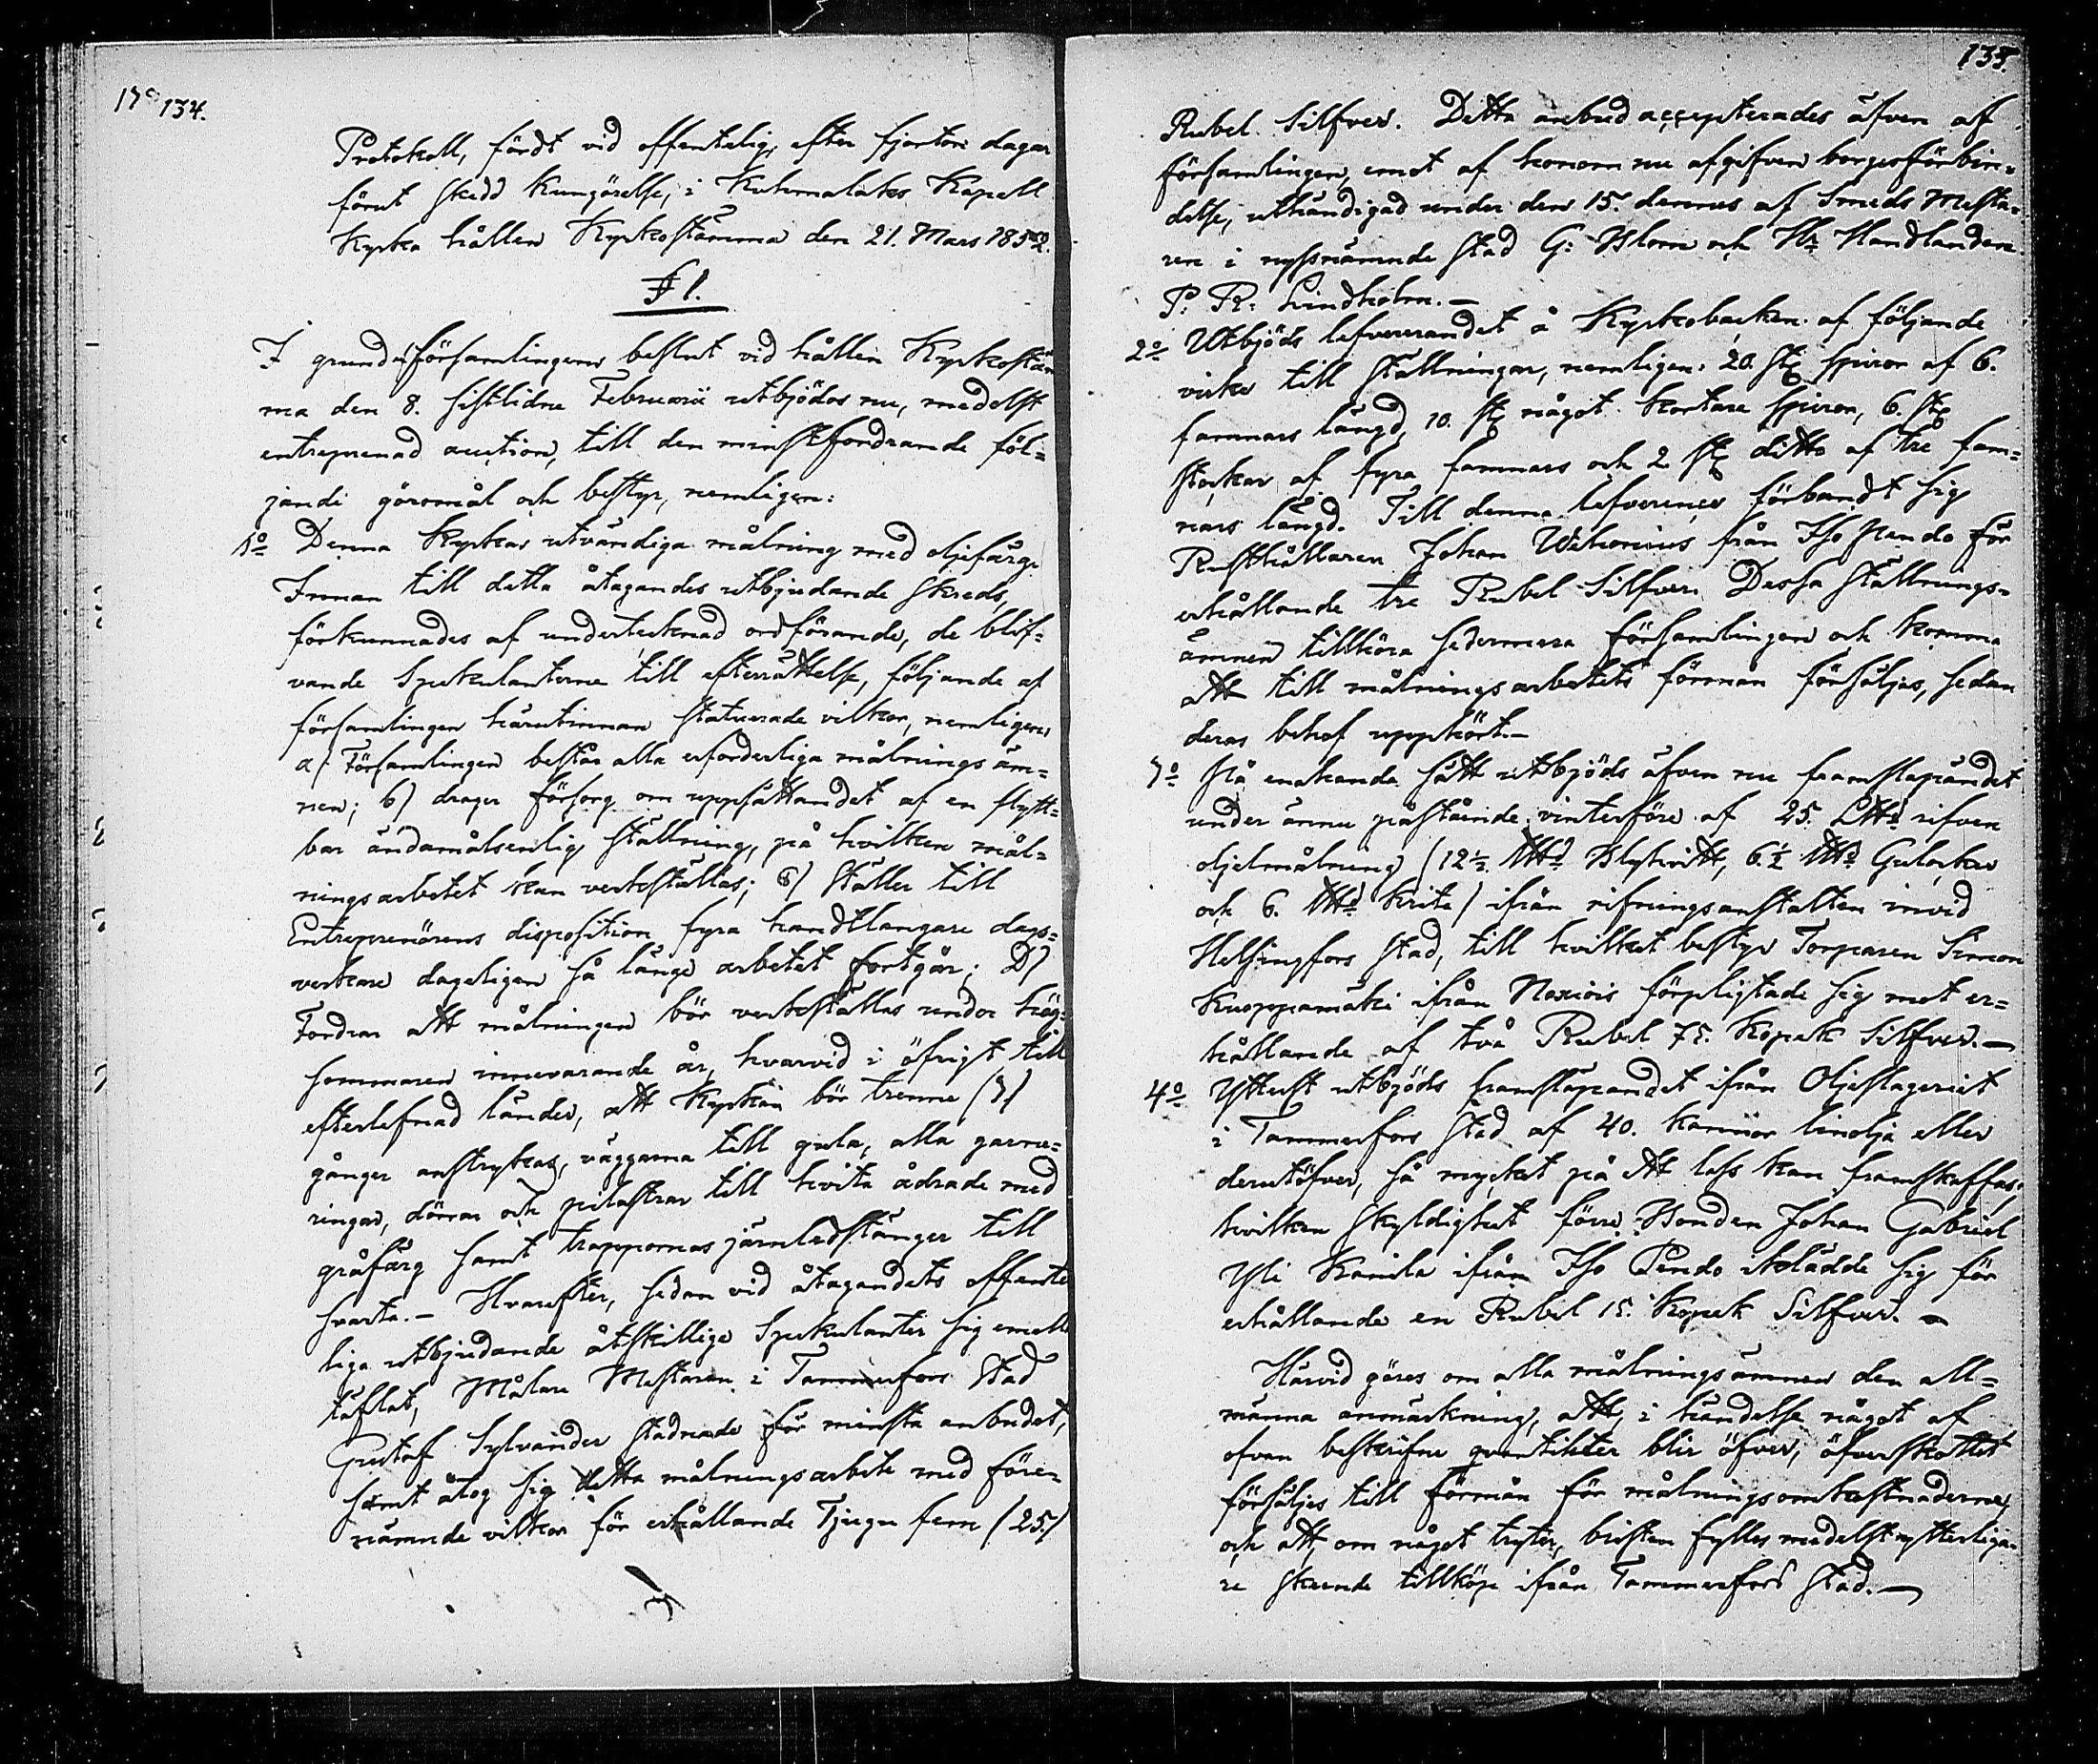 134.
Protokoll, fördt vid offentelig, efter fjorton dagar
förut skedd kungörelse, i Kuhmalaks Kapell
Kyrka hållen Kyrkostämma den 21. Mars 1852.
§ 1.
I grund af församlingens beslut vid hållen Kyrkostäm
ma den 8. sistlidne Februarii utbjödos nu, medelst
entreprenad auction, till den minstfordrande föl=
jande göromål och bestyr, nemligen:
1o Denna Kyrkas utvändiga målning med oljefärg.
Innan till detta åtagandes utbjudande skreds,
förkunnades af undertecknad ordförande, de blif=
vande Spekulanterne till efterrättelse, följande af
församlingen härutinnan statuerade vilkor, nemligen:
a) Församlingen består alla erforderliga målningsäm=
nen; b) drager försorg om uppsättandet af en flytt=
bar ändamålsenlig ställning, på hvilken mål=
ningsarbetet kan verkställas; c) Ställer till
Entreprenörens disposition fyra handtlangare dags=
verkare dageligen så länge arbetet fortgår; D)
Fordrar att målningen bör verkställas under hög=
sommaren innevarande år, hvarvid i öfrigt till
efterlefnad länder, att Kyrkan bör trenne (3)
gånger anstrykas, väggarna till gula, alla garne=
ringar, dörrar och pilastrar till hvita ådrade med
gråfärg samt trappornas jernledstänger till
svarta. – Hvarefter, sedan vid åtagandets offente
liga utbjudande åtskillige Spekulanter sig emella
täflat, Målare Mästaren i Tammerfors Stad
Gustaf Sylvander stadnade för minsta anbudet,
samt åtog sig detta målningsarbete med före=
nämnde vilkor för erhållande Tjugu fem (25.)
135.
Rubel Silfver. Detta anbud accepterades äfven af
församlingen, emot af honom nu afgifven borgesförbin=
delse, utfändigad under den 15. dennes af Smeds Mästa=
ren i nyssnämnde stad G: Blom och Hr Handlanden
P: R: Lindholm. –
2o Utbjöds lefvererandet å Kyrkobacken af följande
virke till ställningar, nemligen: 20. st. spiror af 6.
famnars längd, 10. st. något kortare spiror, 6. st.
stockar af fyra famnars och 2 st. ditto af tre fam=
nars längd. Till denna lefverence förbandt sig
Rusthållaren Johan Wihonius från Iso Pendo för
erhållande tre Rubel Silfver. Dessa ställnings=
ämnen tillhöra sedermera församlingen och komma
att till målningsarbetets förmån försäljas, sedan
deras behof upphört. –
3o På enahanda sätt utbjöds äfven nu framsläpandet
under ännu påstående vinterföre af 25. LHd rifven
oljemålning (12½ LHd Blyhvitt, 6½ LHd Gulocker
och 6. LHd Krita) ifrån rifningsanstalten invid
Helsingfors stad, till hvilket bestyr Torparen Simon
Kuoppamäki ifrån förpligtade sig mot er=
hållande af två Rubel 75. Kopek Silfver. –
4o Ytterst utbjöds framsläpandet ifrån Oljeslageriet
i Tammerfors Stad af 40. kannor linolja eller
derutöfver, så mycket på ett lass kan framskaffas,
hvilken skyldighet förre Bonden Johan Gabriel
Yli Kaivila ifrån Iso Pendo iklädde sig för
erhållande en Rubel 15. Kopek Silfver. –
Härvid göres om alla målningsämnen den all=
männa anmärkning, att, i händelse något af
ofvan beskrifne qvantiteter blir öfver, öfverskottet
försäljes till förmån för målningsomkostnaderne,
och att, om något tryter, bristen fylles medelst ytterliga=
re skeende tillköp ifrån Tammerfors Stad. –